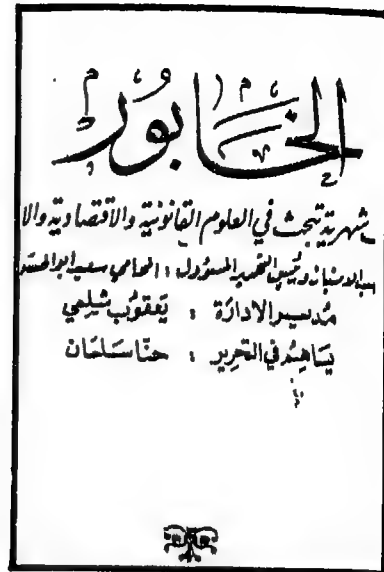 الخَابُور
شهرية تبحث في العلوم القانونية والاقتصادية والا
الامتياز ورئيس التحرير المسؤول : المحامي سعيد ابو الحسن
مُديـر الادارَة : يَعقوُب شَلمِي
يسَاهِم في التحرِير : حنّا سَلمَان